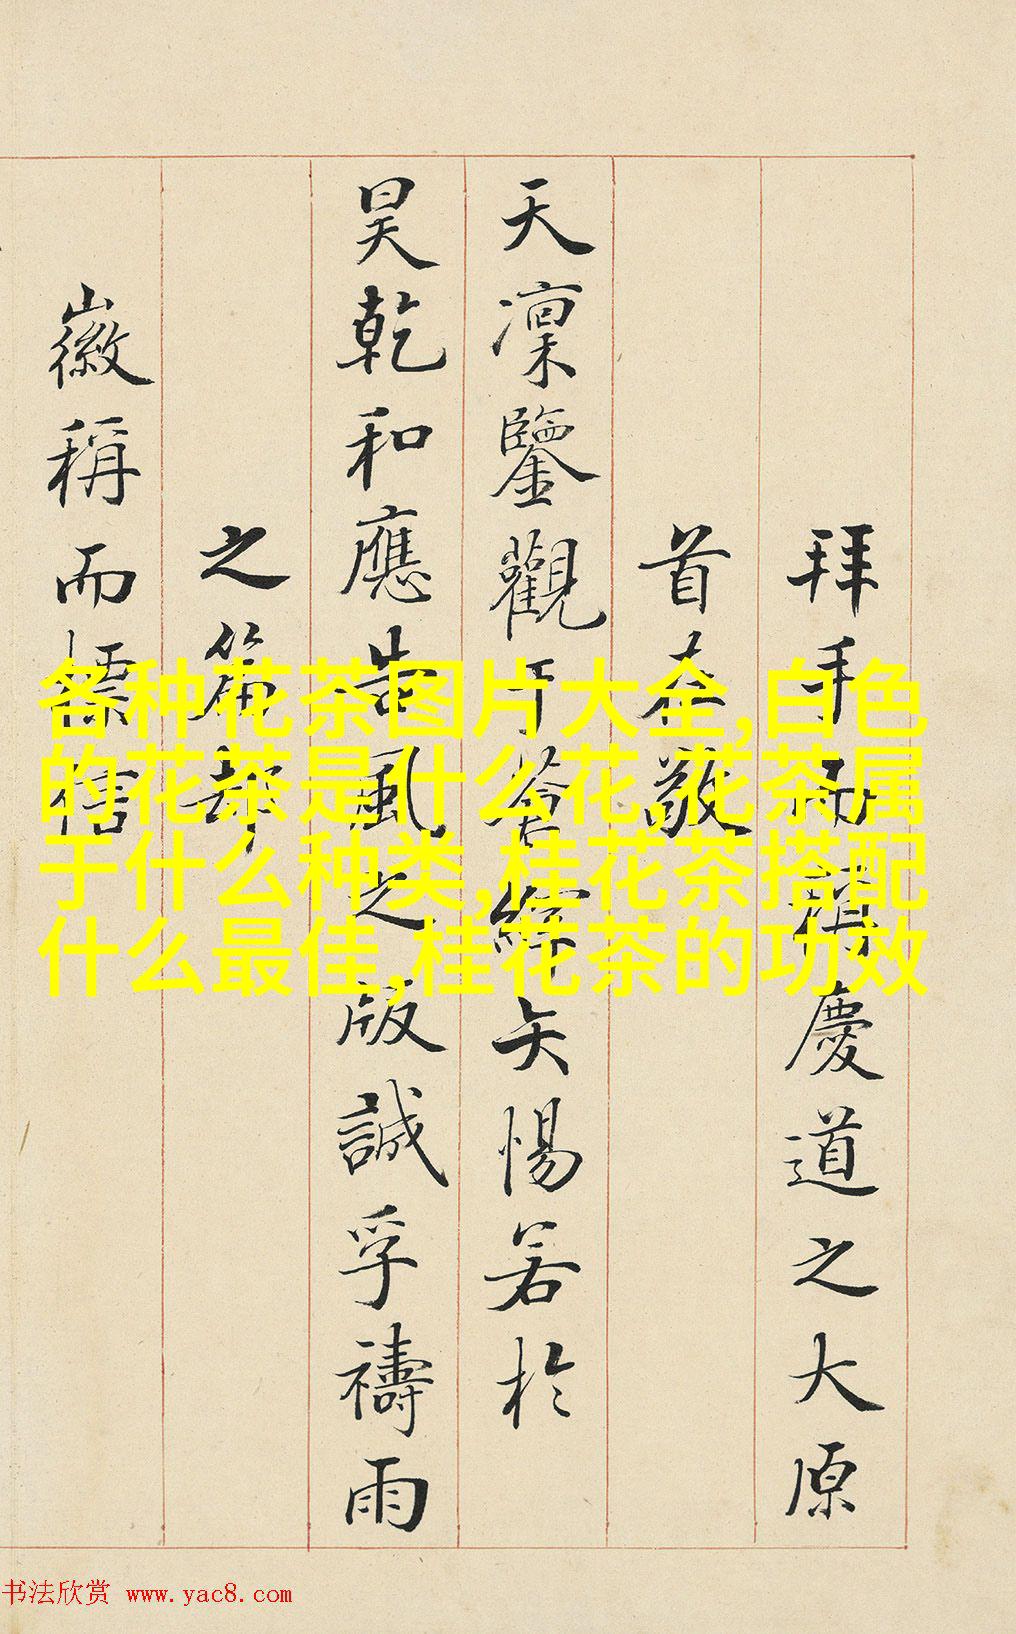 拜手而稽慶道之大原
首在敬
天凜鑒觀於
矢惕若於
昊乾和應告風之版誠孚禱雨
之篇却
徽稱而
各种花茶图片大全,白色
的花茶是什么花,花茶属
于什么种类,桂花茶搭配
什么最佳,桂花茶的功效
书法欣赏 www.yac8.com